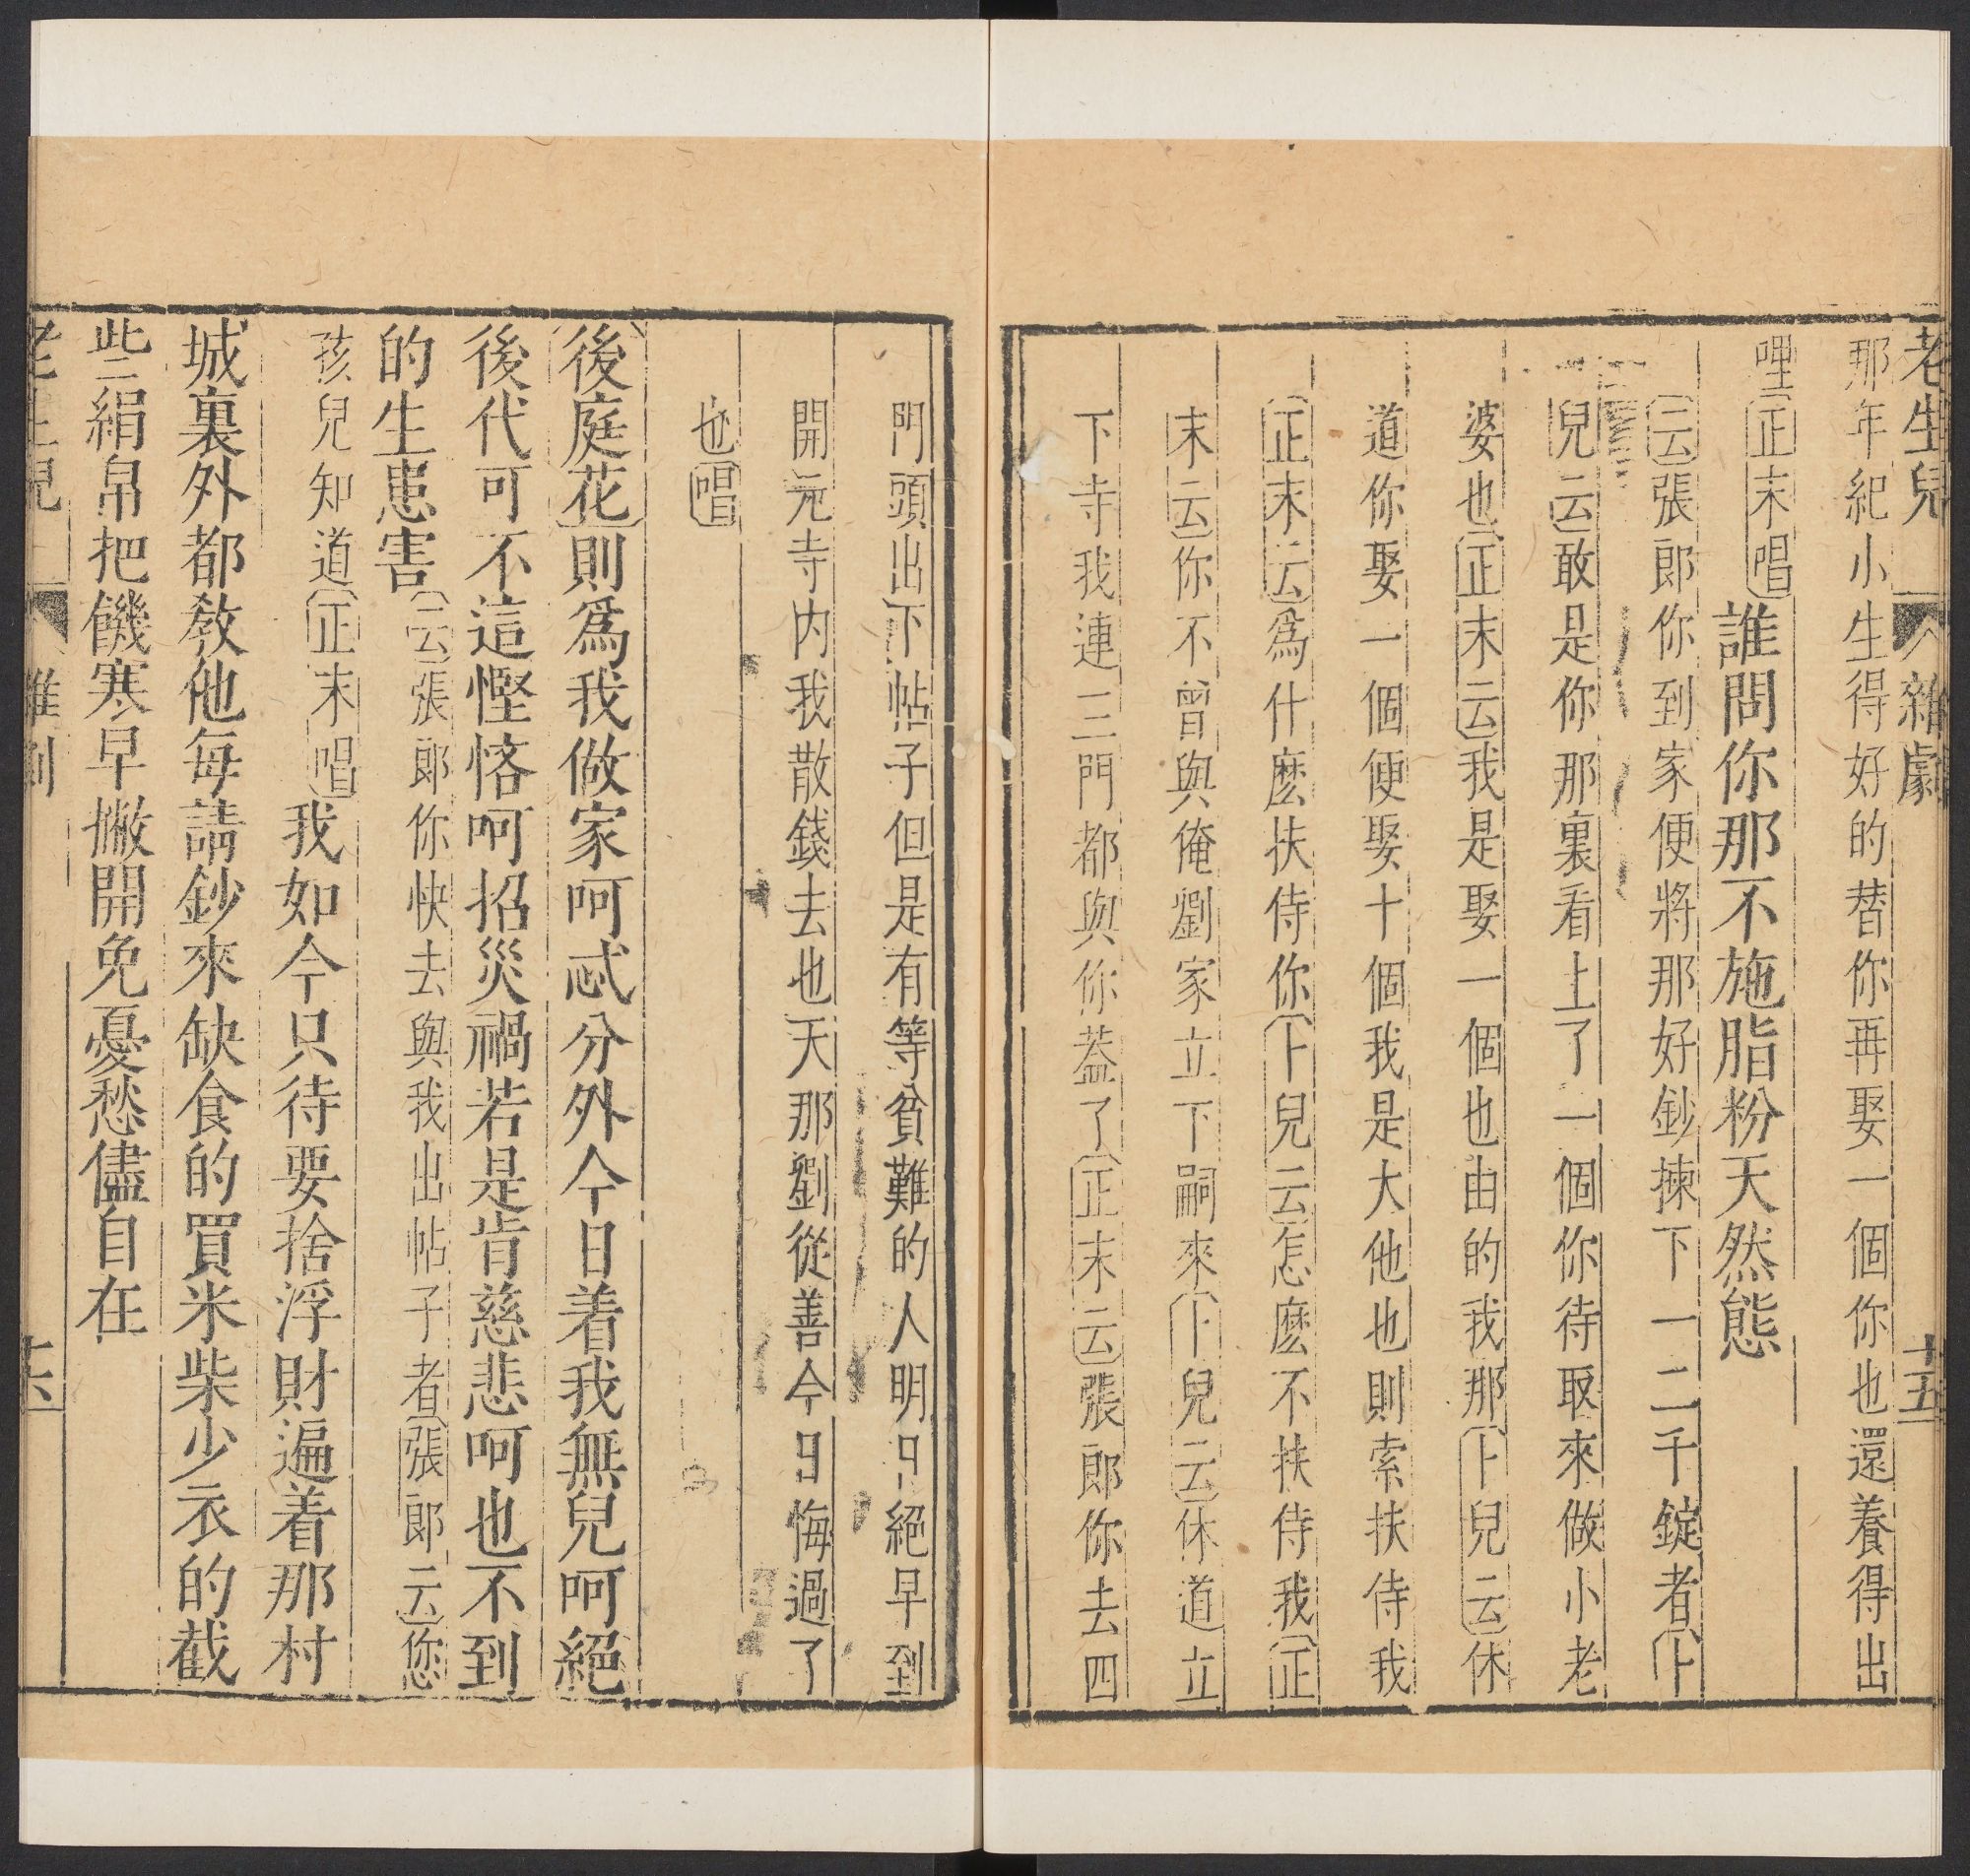 老生兒 雜劇 十五
那年紀小生得好的替你再娶一個你也還養得出
哩〔正末唱〕誰問你那不施脂粉天然態
〔云〕張郎你到家便將那好鈔揀下一二千錠者〔卜
兒云〕敢是你那裏看上了一個你待取來做小老
婆也〔正末云〕我是娶一個也由的我那〔卜兒云〕休
道你娶一個便娶十個我是大他也則索扶侍我
〔正末云〕爲什麽扶侍你〔卜兒云〕怎麽不扶侍我〔正
末云〕你不曾與俺劉家立下嗣來〔卜兒云〕休道立
下寺我連三門都與你蓋了〔正末云〕張郎你去四
門頭出下帖子但是有等貧難的人明日絕早到
開元寺内我散錢去也天那劉從善今日悔過了
也〔唱〕
〔後庭花〕則爲我做家呵忒分外今日着我無兒呵絕
後代可不這慳悋呵招災禍若是肯慈悲呵也不到
的生患害〔云〕張郎你快去與我出帖子者〔張郎云〕您
孩兒知道〔正末唱〕我如今只待要捨浮財遍着那村
城裏外都教他每請鈔來缺食的買米柴少衣的截
些絹帛把饑寒早撇開免憂愁儘自在